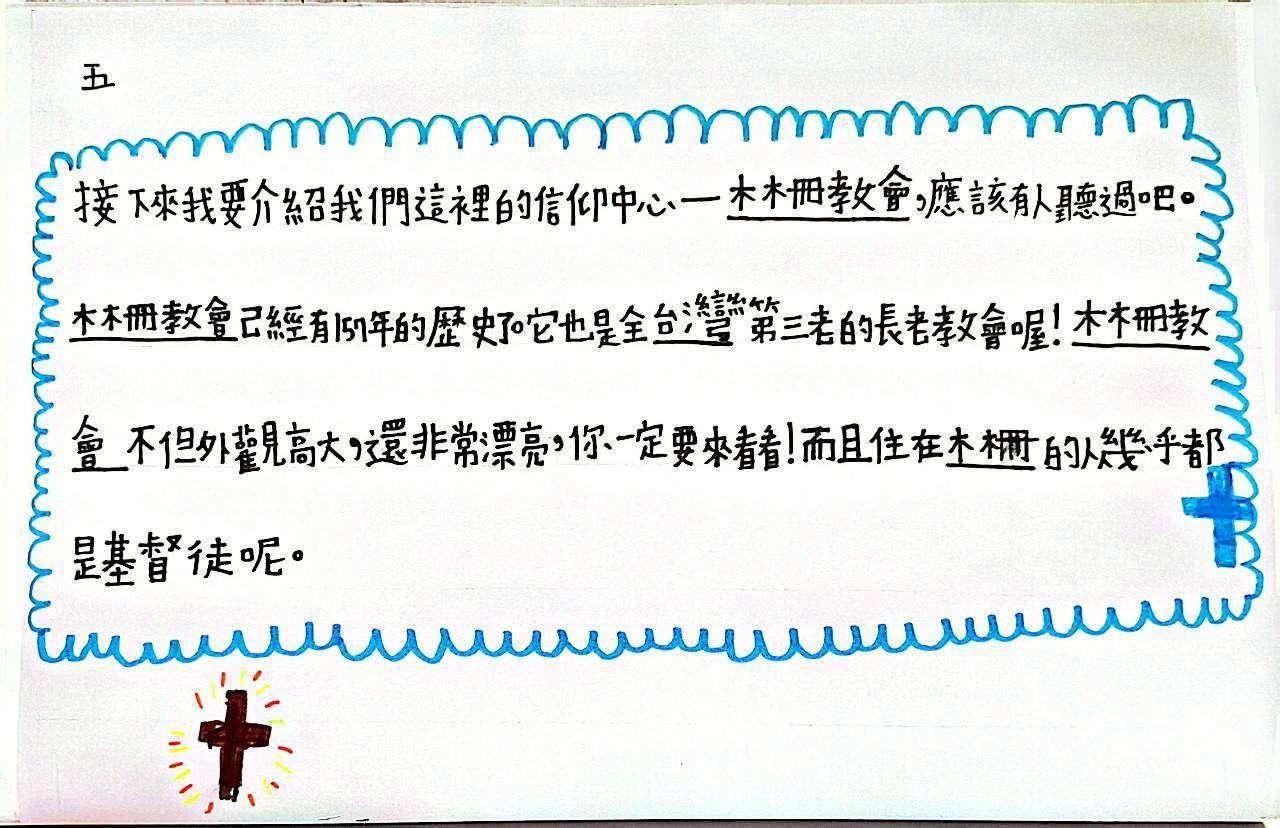 五
接下來我要介紹我們這裡的信仰中心—木柵教會,應該有人聽過吧。
木柵教會已經有157年的歷史了。它也是全台灣第三老的長老教會喔!木柵教
會不但外觀高大,還非常漂亮,你一定要來看看!而且住在木柵的人幾乎都
是基督徒呢。